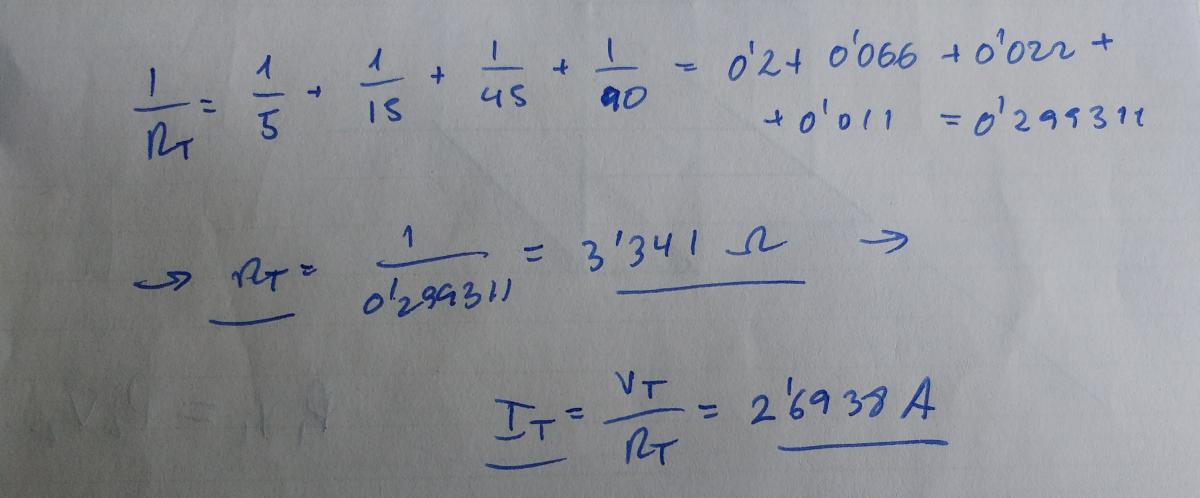 1/R_T = 1/5 + 1/15 + 1/45 + 1/90 = 0'2 + 0'066 + 0'022 +
+ 0'011 = 0'299311
→ R_T = 1/0'299311 = 3'341 Ω →
I_T = V_T/R_T = 2'6938 A